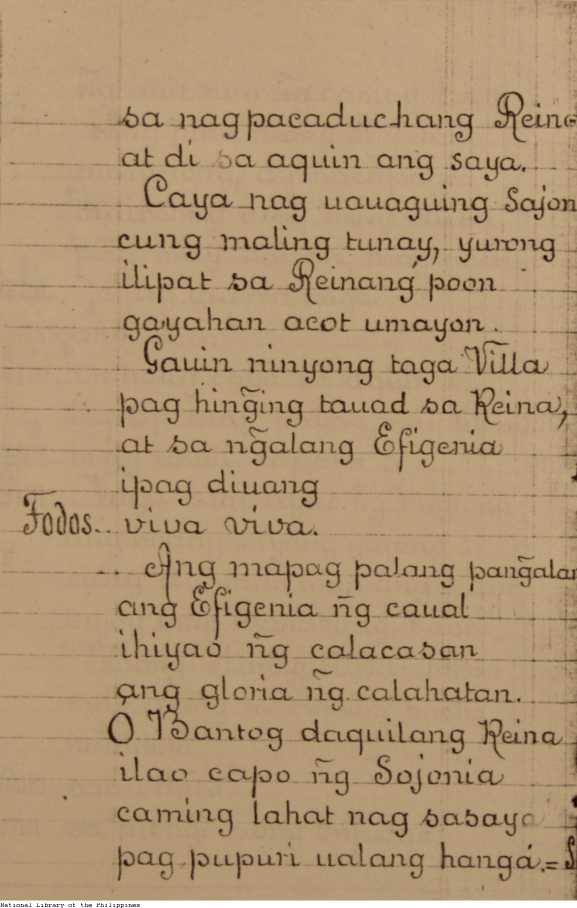 sa nag pacaduchang Reina
at di sa aquin ang saya.
Caya nag uauaguing Sajon
cung maling tunay, yurong
ilipat sa Reinang poon
gayahan acot umayon.
Gauin ninyong taga Villa
pag hing̃ing tauad sa Reina,
at sa ng̃alang Efigenia
ipag diuang
Todos.. viva viva.
Ang mapag palang pang̃alan
ang Efigenia ñg caual
ihiyao ñg calacasan
ang gloria ñg calahatan.
O Bantog daquilang Reina
ilao capo ñg Sojonia
caming lahat nag sasaya
pag pupuri ualang hangá.=
National Library of the Philippines